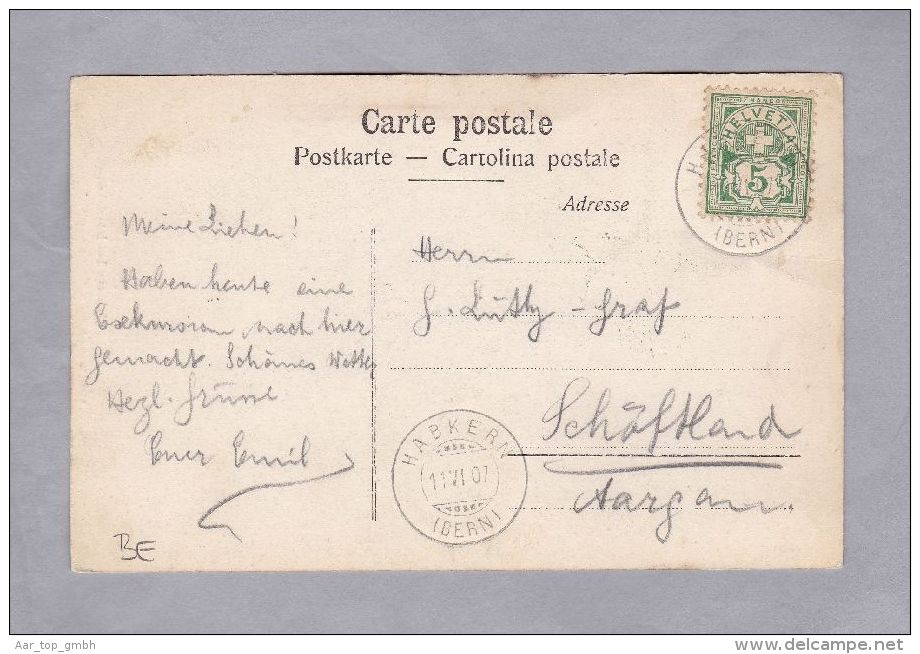 Carte postale
Postkarte — Cartolina postale
Adresse
HELVETIA
FRANCO
5
H
(BERN)
Meine Lieben!
Haben heute eine
nach hier
gemacht. Schönes Wetter
Herzl. Grüsse
Euer Emil
BE
Herrn
G. Lüthy-Graf
Schöftland
Aargau.
HABKERN
11 VI 07
(BERN)
Aar_top_gmbh
www.delcampe.net